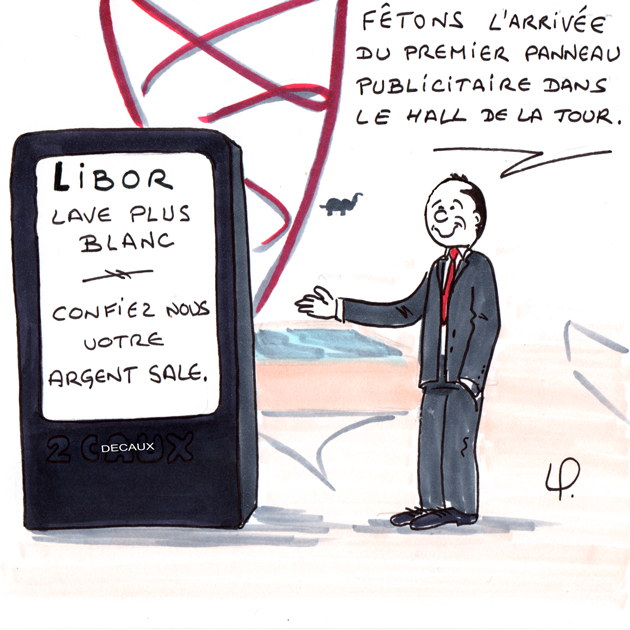 FÊTONS L'ARRIVÉE
DU PREMIER PANNEAU
PUBLICITAIRE DANS
LE HALL DE LA TOUR.
LIBOR
LAVE PLUS
BLANC
CONFIEZ NOUS
VOTRE
ARGENT SALE.
2 CAUX
DECAUX